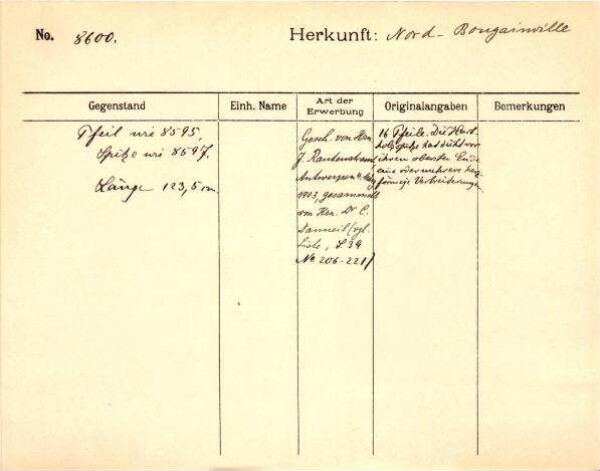 No. 8600.
Herkunft: Nord-Bougainville
Gegenstand
Einh. Name
Art der Erwerbung
Originalangaben
Bemerkungen
Pfeil wie 8595,
Spitze wie 8597.
Länge 123,5 cm.
Gesch. von Hrn.
J. Rautenstrauch,
Antwerpen 4. May
1903, gesammelt
von Hrn. Dr C.
Danneil (vgl.
Liste, S. 34
No 206-221)
16 Pfeile. Die Hart-
holzspitze hat dicht vor
ihrem obersten Ende
eine oder mehrere
förmige Verbreiterungen